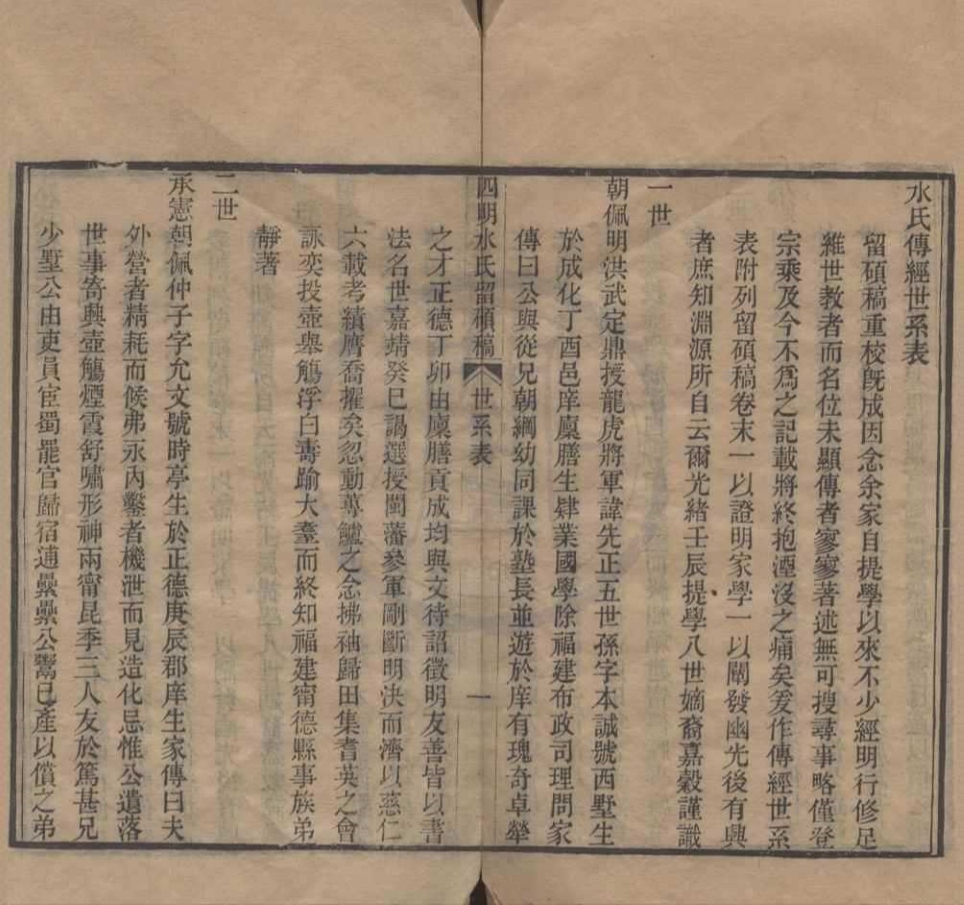 水氏傳經世系表
留碩稿重校旣成因念余家自提學以來不少經明行修足
維世教者而名位未顯傳者寥寥著述無可搜尋事略僅登
宗乘及今不爲之記載將終抱湮沒之痛矣爰作傳經世系
表附列留碩稿卷末一以證明家學一以闡發幽光後有興
者庶知淵源所自云爾光緒壬辰提學八世嫡裔嘉穀謹識
一世
朝佩明洪武定鼎授龍虎將軍諱先正五世孫字本誠號西墅生
於成化丁酉邑庠廩膳生肄業國學除福建布政司理問家
傳曰公與從兄朝綱幼同課於塾長並遊於庠有瑰奇卓犖
四明水氏留碩稿 世系表 一
之才正德丁卯由廩膳貢成均與文待詔徵明友善皆以書
法名世嘉靖癸巳謁選授閩藩參軍剛斷明決而濟以慈仁
六載考績膺喬擢矣忽動蓴鱸之念拂袖歸田集耆英之會
詠奕投壺舉觴浮白壽踰大耋而終知福建甯德縣事族弟
靜著
二世
承憲朝佩仲子字允文號時亭生於正德庚辰郡庠生家傳曰夫
外營者精耗而候弗永內鑿者機泄而見造化忌惟公遺落
世事寄興壺觴煙霞舒嘯形神兩甯昆季三人友於篤甚兄
少墅公由吏員宦蜀罷官歸宿逋纍纍公鬻已產以償之弟